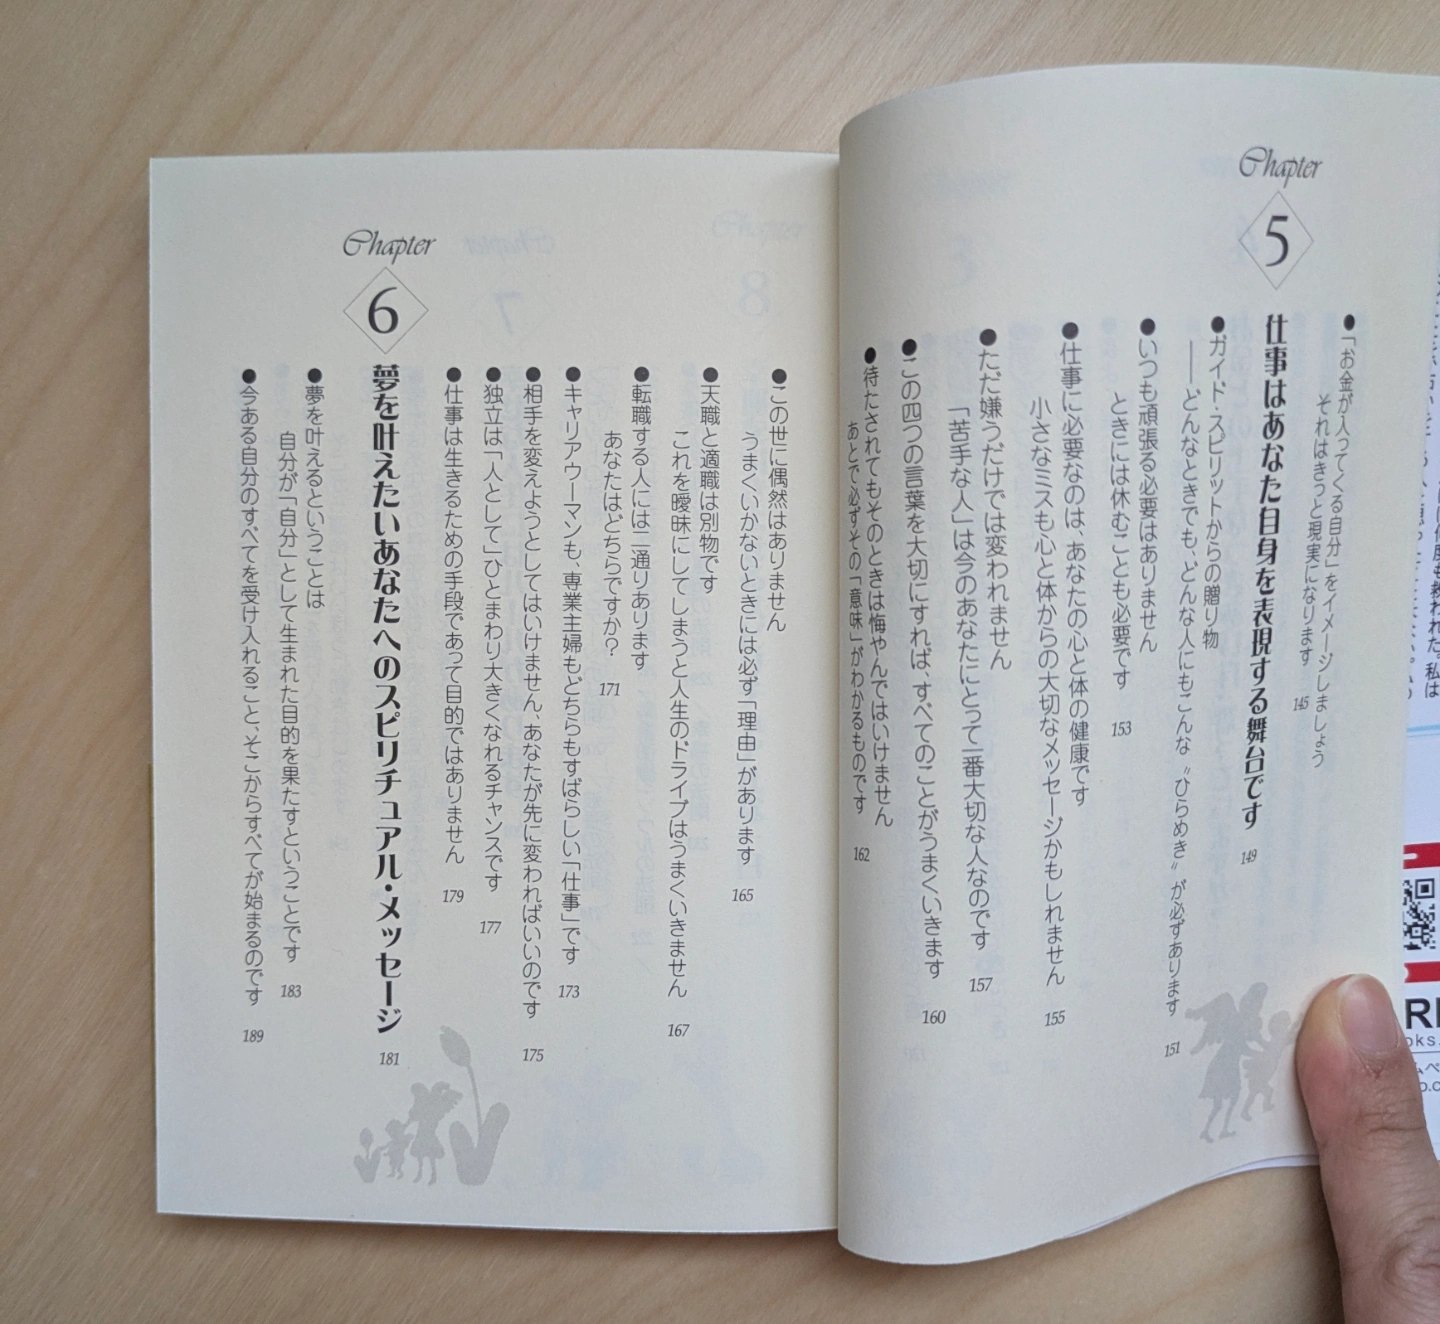 ●「お金が入ってくる自分」をイメージしましょう
それはきっと現実になります 145
Chapter
5
仕事はあなた自身を表現する舞台です 149
●ガイド・スピリットからの贈り物
――どんなときでも、どんな人にもこんな〝ひらめき〟が必ずあります 151
●いつも頑張る必要はありません
ときには休むことも必要です 153
●仕事に必要なのは、あなたの心と体の健康です
小さなミスも心と体からの大切なメッセージかもしれません 155
●ただ嫌うだけでは変われません
「苦手な人」は今のあなたにとって一番大切な人なのです 157
●この四つの言葉を大切にすれば、すべてのことがうまくいきます 160
●待たされてもそのときは悔やんではいけません
あとで必ずその「意味」がわかるものです 162
●この世に偶然はありません
うまくいかないときには必ず「理由」があります 165
●天職と適職は別物です
これを曖昧にしてしまうと人生のドライブはうまくいきません 167
●転職する人には二通りあります
あなたはどちらですか? 171
●キャリアウーマンも、専業主婦もどちらもすばらしい「仕事」です 173
●相手を変えようとしてはいけません、あなたが先に変わればいいのです 175
●独立は「人として」ひとまわり大きくなれるチャンスです 177
●仕事は生きるための手段であって目的ではありません 179
Chapter
6
夢を叶えたいあなたへのスピリチュアル・メッセージ 181
●夢を叶えるということは
自分が「自分」として生まれた目的を果たすということです 183
●今ある自分のすべてを受け入れること、そこからすべてが始まるのです 189